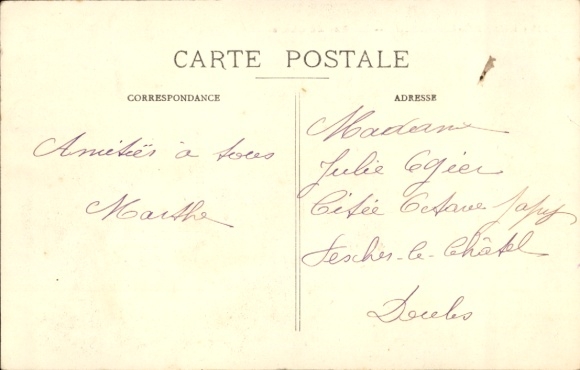 CARTE POSTALE
CORRESPONDANCE
ADRESSE
Amitiés à tous
Marthe
Madame
Julie Ogier
Citée Octave Japy
Fesches-le-Châtel
Doubs